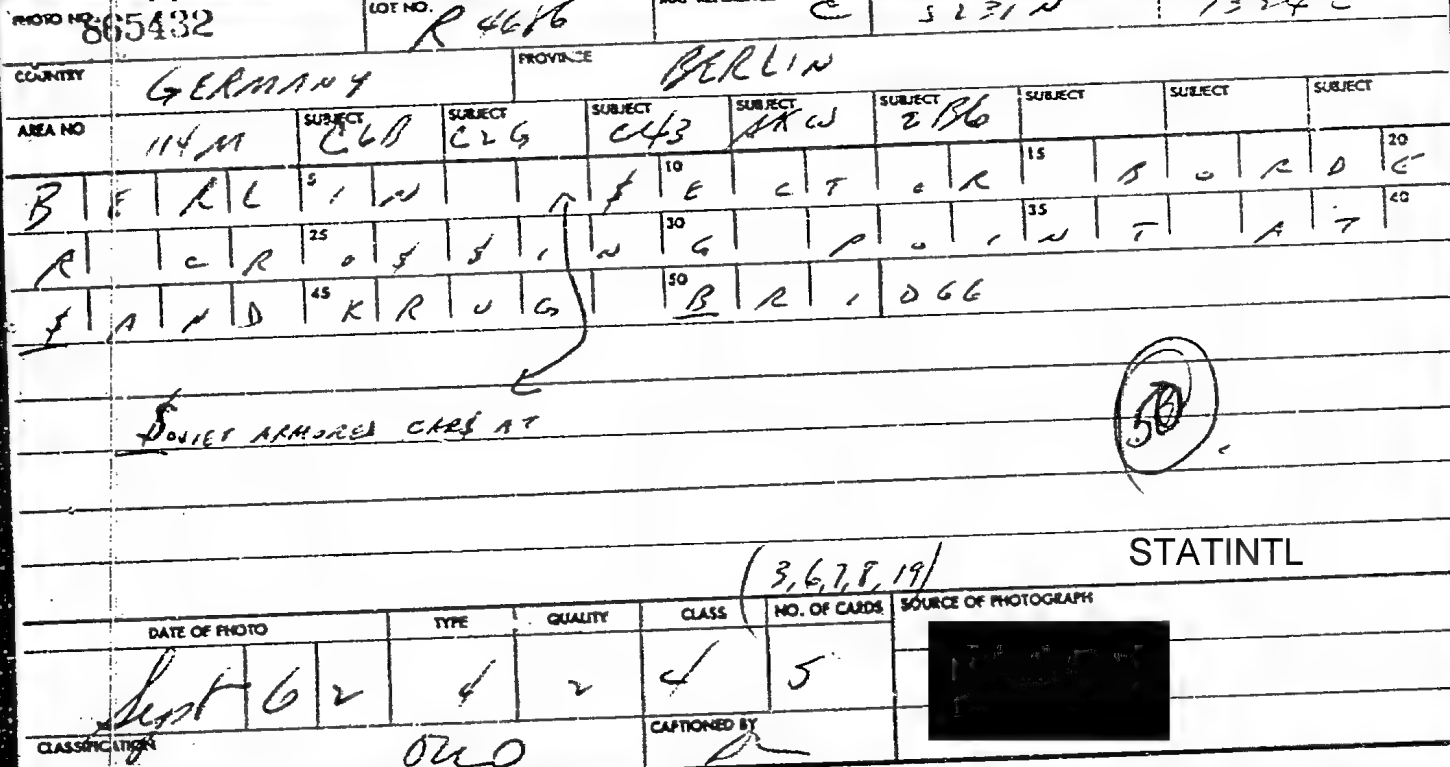 PHOTO NO. 865432 LOT NO. R 4686 C 5231N 1324E
COUNTRY GERMANY PROVINCE BERLIN
AREA NO 114M SUBJECT C6B SUBJECT C2G SUBJECT C43 SUBJECT AKW SUBJECT 2B6 SUBJECT SUBJECT SUBJECT
BERL 5 IN $ 10 ECTOR 15 BORD 20 E
R CR 25 O$$IN 30 G POI 35 NT AT 40
$AND 45 KRUG 50 BRIDGE
$OVIET ARMORED CAR$ AT
50
STATINTL
(3,6,7,8,19)
DATE OF PHOTO TYPE QUALITY CLASS NO. OF CARDS SOURCE OF PHOTOGRAPH
Sept 6 2 4 2 4 5
CLASSIFICATION OUO CAPTIONED BY